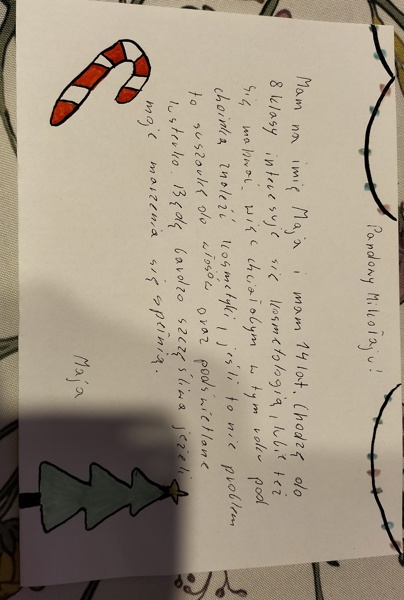 Pandowy Mikołaju!
Mam na imię Maja i mam 14 lat. Chodzę do
8 klasy interesuje się kosmetologią, lubię też
się malować. więc chciałabym w tym roku pod
choinką znaleźć kosmetyki, jeśli to nie problem
to suszarkę do włosów oraz podświetlane
lusterko. Będę bardzo szczęśliwa jeżeli
moje marzenia się spełnią.
Maja